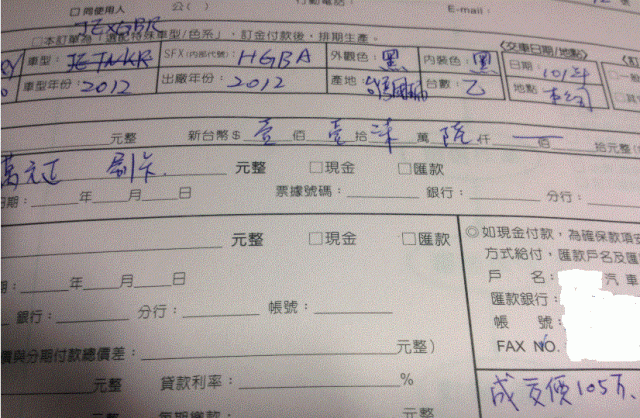 □同使用人 公( ) 行動電話: E-mail:
□本訂單為「選配特殊車型/色系」,訂金付款後,排期生產。
車型: JEXGBR SFX(內部代號): HGBA 外觀色: 黑 內裝色: 黑
〈交車日期/地點〉
日期:
車型年份: 2012 出廠年份: 2012 產地: 台數: 乙
地點
元整 新台幣$ 壹 佰 壹 拾 柒 萬 陸 仟 拾元整
萬元正 刷卡 元整 □現金 □匯款
日期: 年 月 日 票據號碼: 銀行: 分行:
元整 □現金 □匯款
年 月 日
銀行: 分行: 帳號:
價與分期付款總價差: 元整)
元整 貸款利率: %
◎如現金付款,為確保款項安
方式給付,匯款戶名及匯
戶 名: 汽車
匯款銀行:
帳 號:
FAX NO.
成交價105万、